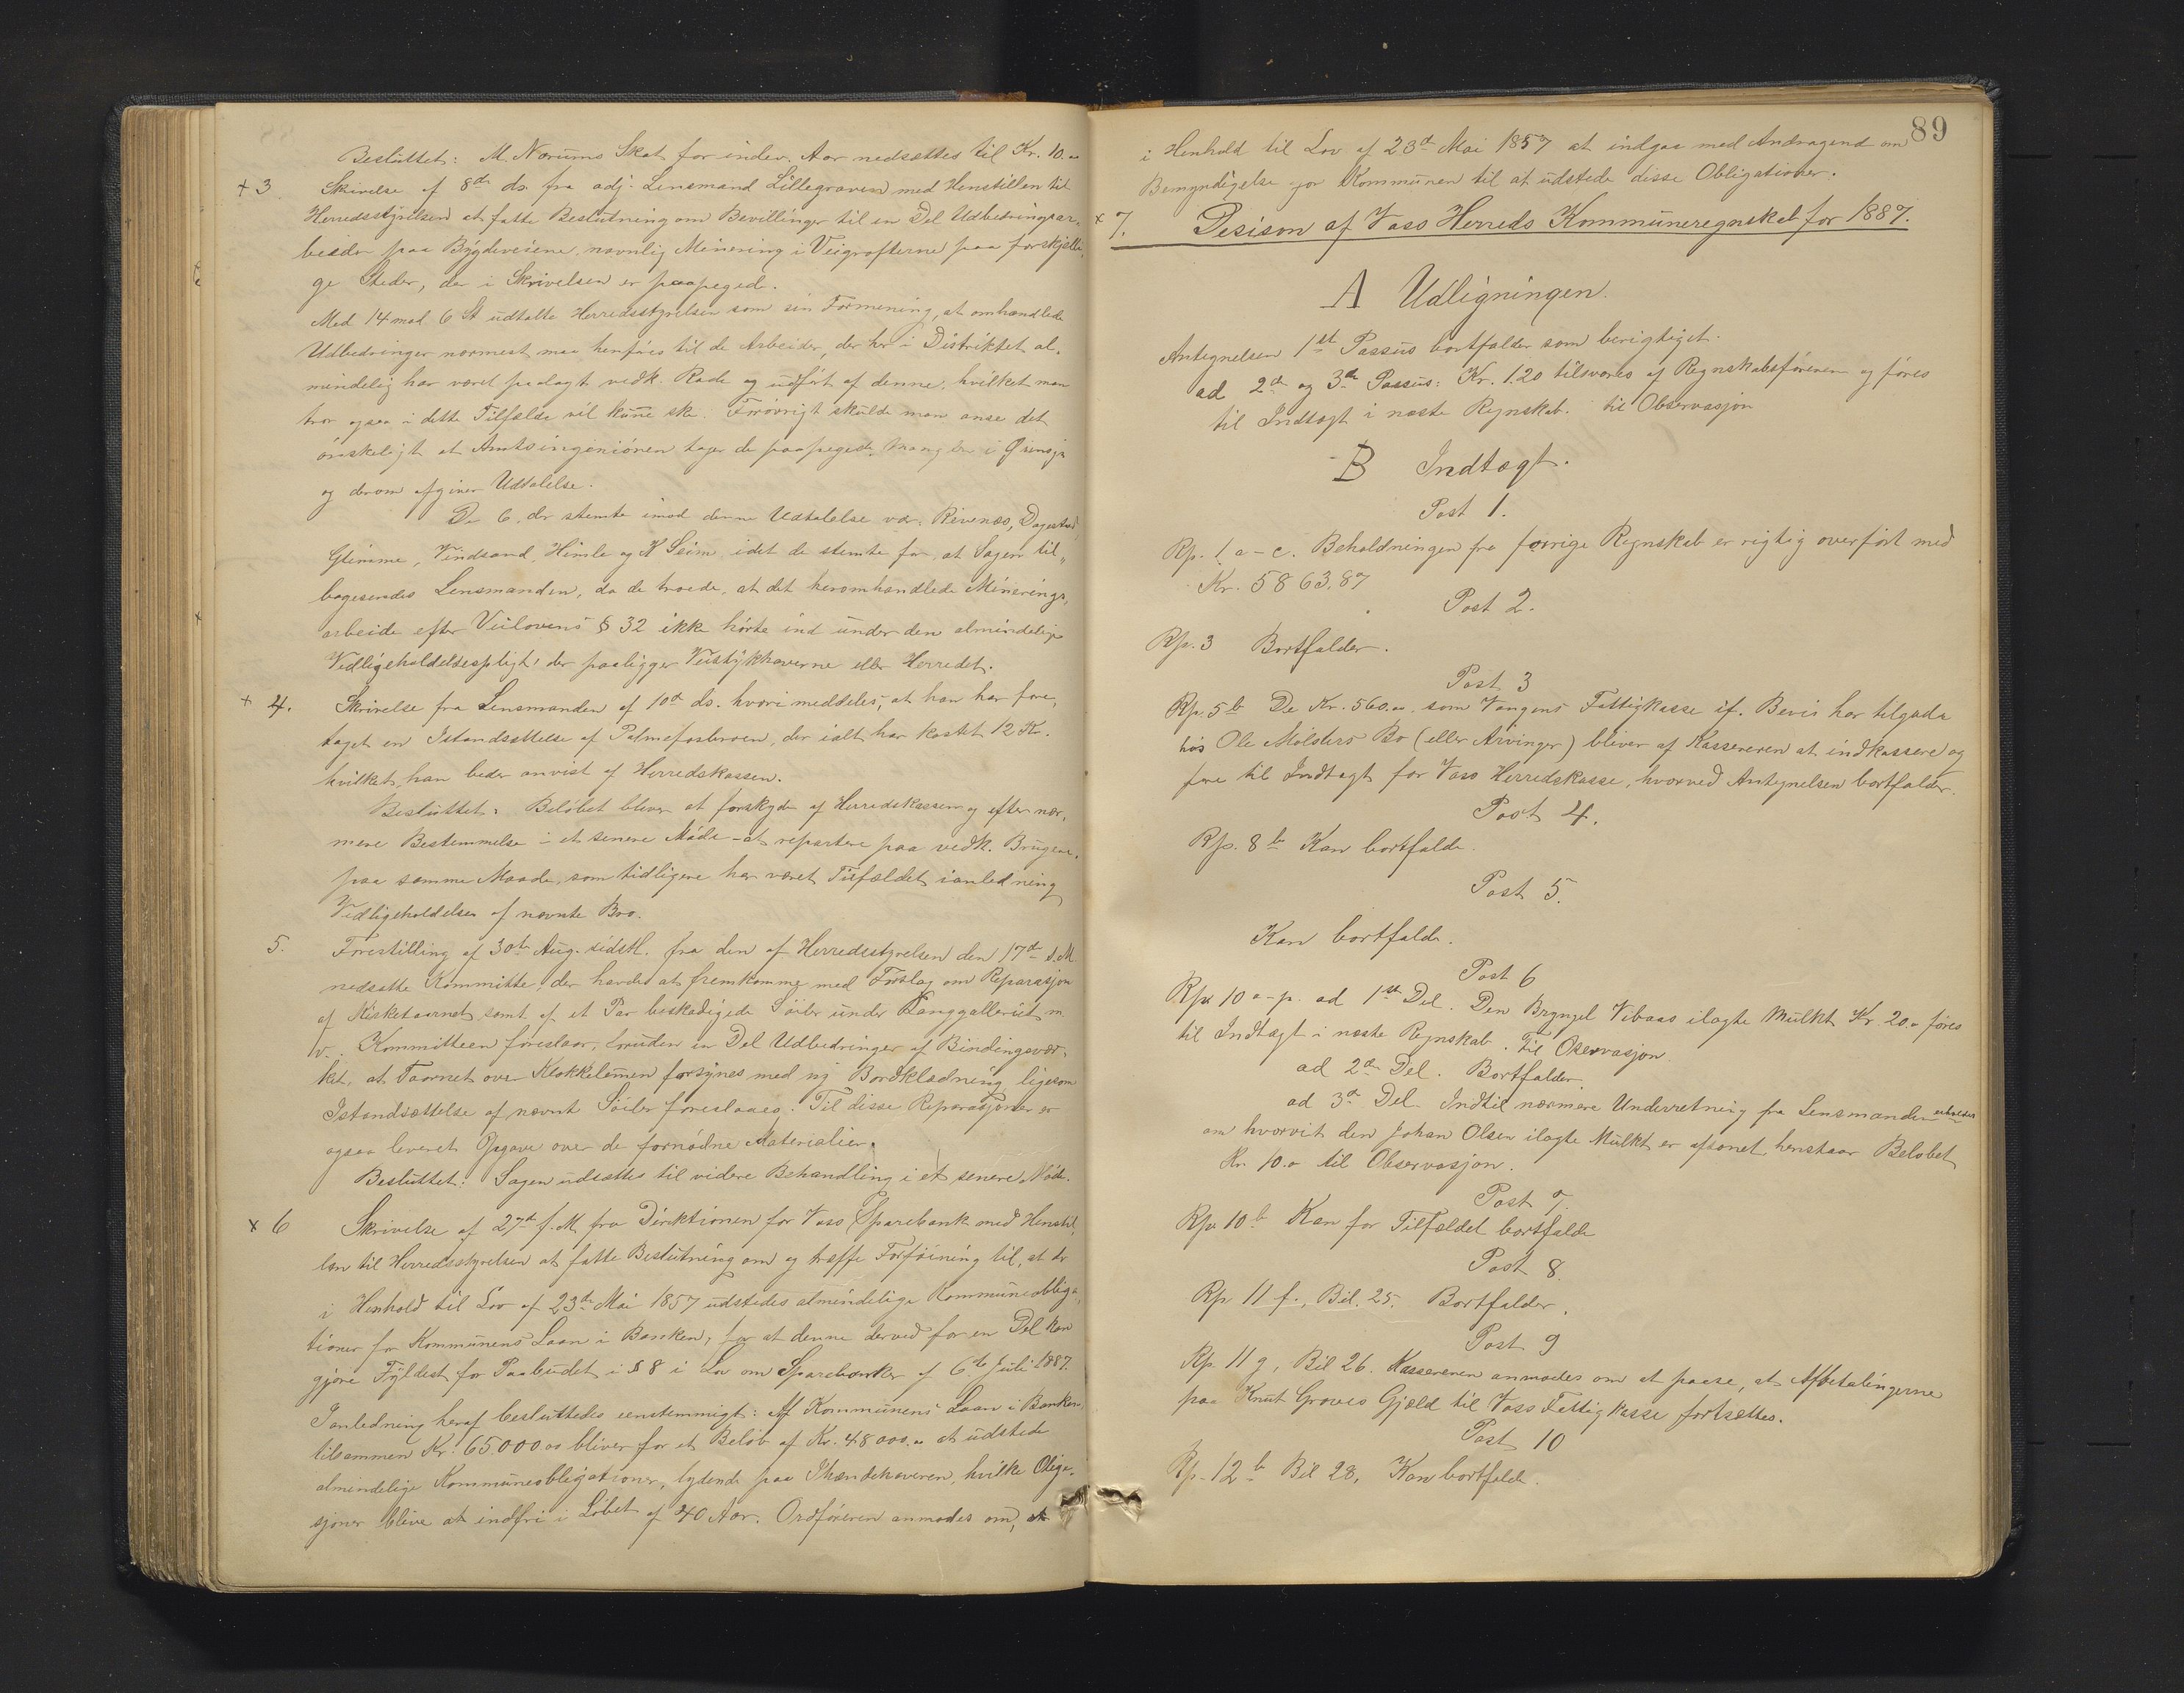 Besluttet: M. Nærums Skat for indev. Aar nedsættes til Kr. 10.00
+ 3 Skrivelse af 8de ds. fra adj. Lensmand Lillegraven med Henstillen til
Herredsstyrelsen at fatte Beslutning om Bevillinger til en Del Udbedringsar-
beider paa Bygdeveiene, navnlig Minering i Veigrøfterne paa forskjelli-
ge Steder, der i Skrivelsen er paapegede.
Med 14 mod 6 St udtalte Herredsstyrelsen som sin Formening, at omhandlede
Udbedringer nærmest maa henføres til de Arbeider, der her i Distriktet al-
mindelig har været paalagt vedk. Rode og udført af denne, hvilket man
tror ogsaa i dette Tilfælde vil kunne ske. Forøvrigt skulde man anse det
ønskeligt at Amtsingeniøren tager de paapegede Mangler i Øiensyn
og derom afgiver Udtalelse.
De 6, der stemte imod denne Udtalelse var: Rivenæs, Dagestad,
Glimme, Vindsand, Himle og K Seim, idet de stemte for, at Sagen til-
bagesendes Lensmanden, da de troede, at det heromhandlede Minerings-
arbeide efter Veilovens § 32 ikke hørte ind under den almindelige
Vedligeholdelsespligt, der paaligger Veistykhaverne eller Herredet.
+ 4. Skrivelse fra Lensmanden af 10de ds. hvori meddeles, at han har fore-
taget en Istandsættelse af Palmefosbroen, der ialt har kostet 12 Kr.
hvilket han beder anvist af Herredskassen.
Besluttet: Beløbet bliver at forskyde af Herredskassen og efter nær-
mere Bestemmelse i et senere Møde at repartere paa vedk. Brugere,
paa samme Maade, som tidligere har været Tilfældet i anledning
Vedligeholdelsen af nævnte Bro.
5. Forestilling af 30te Aug. sidstl. fra den af Herredsstyrelsen den 17de s. M.
nedsatte Kommitte, der havde at fremkomme med Forslag om Reparasjon
af Kirketaarnet samt af et Par beskadigede Søiler under Sanggalleriet m.
v. Kommitteen foreslaar, foruden en Del Udbedringer af Bindingsvær-
ket, at Taarnet over Klokkelemen forsynes med ny Bordklædning, ligesom
Istandsættelse af nævnte Søiler foreslaaes. Til disse Reparasjoner er
ogsaa leveret Opgave over de fornødne Materialier.
Besluttet: Sagen udsættes til videre Behandling i et senere Møde.
x 6 Skrivelse af 27de f. M. fra Direktionen for Voss Sparebank med Henstil-
len til Herredsstyrelsen at fatte Beslutning om og træffe Forføining til, at der
i Henhold til Lov af 23de Mai 1857 udstedes almindelige Kommuneobliga-
tioner for Kommunens Laan i Banken, for at denne derved for en Del kan
gjøre Fyldest for Paabudet i § 8 i Lov om Sparebanker af 6te Juli 1887.
I anledning heraf besluttedes enstemmigt: Af Kommunens Laan i Banken,
tilsammen Kr. 65000 00 bliver for et Beløb af Kr. 48000.00 at udstede
almindelige Kommuneobligationer, lydende paa Ihændehaveren, hvilke Obliga-
sjoner blive at indfri i Løbet af 40 Aar. Ordføreren anmodes om, at
89
i Henhold til Lov af 23de Mai 1857 at indgaa med Andragende om
Bemyndigelse for Kommunen til at udstede disse Obligationer.
x 7. Desison af Voss Herreds Kommuneregnskab for 1887.
A Udligningen.
Antegnelsen 1ste Passus bortfalder som berigtiget.
ad 2den og 3de Passus: Kr. 1.20 tilsvares af Regnskabsføreren og føres
til Indtægt i næste Regnskab. til Observasjon
B Indtægt.
Post 1.
Rp. 1 a-c. Beholdningen fra forrige Regnskab er rigtig overført med
Kr. 5863.87
Post 2.
Rp. 3 Bortfalder.
Post 3
Rp. 5 b De Kr. 560.00, som Vangens Fattigkasse if. Bevis har tilgode
hos Ole Mølsters Bo (eller Arvinger) bliver af Kassereren at indkassere og
føre til Indtægt for Voss Herredskasse, hvorved Antegnelsen bortfalder.
Post 4.
Rp. 8 b Kan bortfalde.
Post 5.
Kan bortfalde.
Post 6
Rp. 10 a-p. ad 1ste Del. Den Bryngel Vibaas ilagte Mulkt Kr. 20.00 føres
til Indtægt i næste Regnskab. Til Oservasjon.
ad 2den Del. Bortfalder.
ad 3de Del. Indtil nærmere Underretning fra Lensmanden erholdes
om hvorvit den Johan Olsen ilagte Mulkt er afsonet, henstaar Beløbet
Kr. 10.00 til Observasjon.
Post 7.
Rp. 10 b Kan for Tilfældet bortfalde
Post 8.
Rp 11 f., Bil. 25. Bortfalder.
Post 9
Rp. 11 g, Bil 26. Kassereren anmodes om at paase, at Afbetalingerne
paa Knut Groves Gjæld til Voss Fattigkasse fortsættes.
Post 10
Rp. 12 b Bil 28, Kan bortfalde.